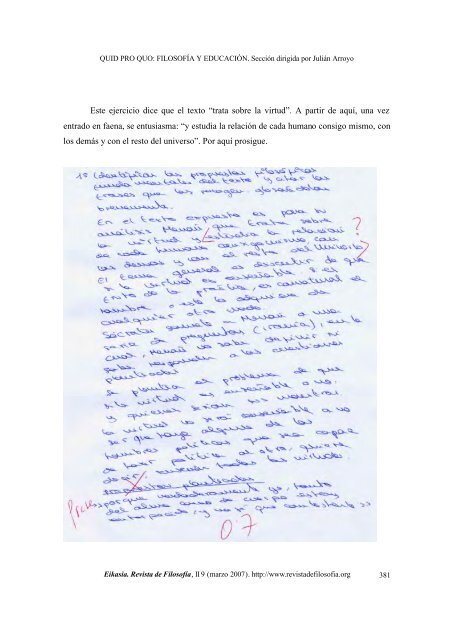 QUID PRO QUO: FILOSOFÍA Y EDUCACIÓN. Sección dirigida por Julián Arroyo
Este ejercicio dice que el texto “trata sobre la virtud”. A partir de aquí, una vez
entrado en faena, se entusiasma: “y estudia la relación de cada humano consigo mismo, con
los demás y con el resto del universo”. Por aquí prosigue.
1º Identificar las propuestas filosóficas
fundamentales del texto y citar las
frases que las
brevemente.
En el texto expuesto es para su
análisis Menón que trata sobre
la virtud y estudia la relación ?
de cada humano consigo mismo, con
los demás y con el resto del Universo ?
El tema general es descubrir de que
si la virtud es enseñable o es
fruto de la práctica, es connatural al
hombre o se la adquiere de
cualquier otro modo.
Sócrates somete a Menón a una
serie de preguntas (ironía), en la
cual, Menón no sabe definir ni
sabe responder a las cuestiones
planteadas
Se plantea el problema de que
si la virtud es enseñable o no.
y quienes serían sus maestros.
la virtud no será enseñable a no
ser que haya alguno de los
hombres políticos que sea capaz
de hacer político al otro, quiere
decir, enseñar todas las virtudes.
planteadas
porque verdaderamente yo, tanto
del alma como de cuerpo estoy
entorpecido, y no sé que contestarte >>
0'7
Eikasia. Revista de Filosofía, II 9 (marzo 2007). http://www.revistadefilosofia.org
381